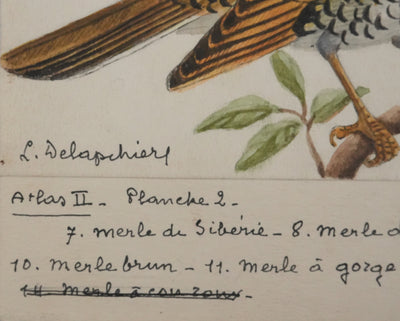 L. Delapchier
Atlas II - Planche 2 -
7. merle de Sibérie - 8. Merle d
10. Merle brun - 11. Merle à gorge
14. Merle à cou roux -